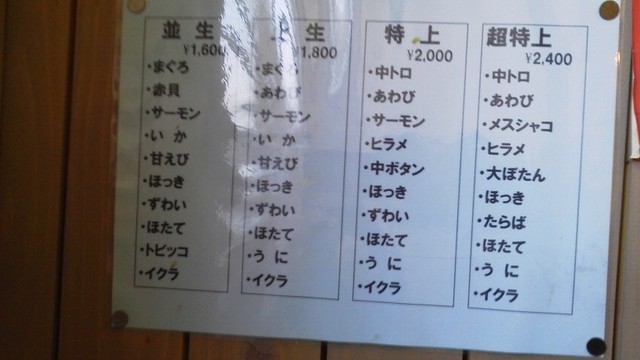 並生
¥1,600
・まぐろ
・赤貝
・サーモン
・いか
・甘えび
・ほっき
・ずわい
・ほたて
・トビッコ
・イクラ
上生
¥1,800
・まぐろ
・あわび
・サーモン
・いか
・甘えび
・ほっき
・ずわい
・ほたて
・うに
・イクラ
特上
¥2,000
・中トロ
・あわび
・サーモン
・ヒラメ
・中ボタン
・ほっき
・ずわい
・ほたて
・うに
・イクラ
超特上
¥2,400
・中トロ
・あわび
・メスシャコ
・ヒラメ
・大ぼたん
・ほっき
・たらば
・ほたて
・うに
・イクラ